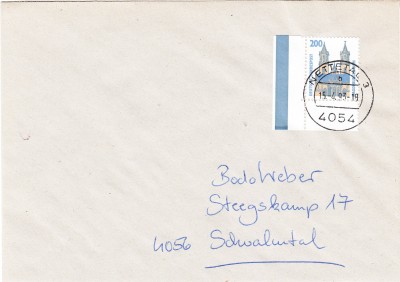 200
NETTETAL 3
b
4054
Bodo Weber
Steegskamp 17
4056 Schwalmtal